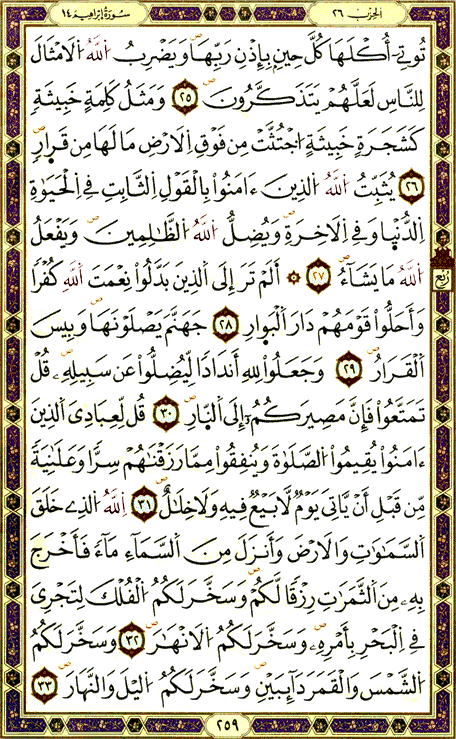 الحزب ٢٦
سورة إبراهيم ١٤
تُوتِے أُكْلَهَا كُلَّ حِينٍ بِإِذْنِ رَبِّهَا وَيَضْرِبُ اُللَّهُ اُلَامْثَالَ
لِلنَّاسِ لَعَلَّهُمْ يَتَذَكَّرُونَ ٢٥ وَمَثَلُ كَلِمَةٍ خَبِيثَةٍ
كَشَجَرَةٍ خَبِيثَةٍ اُجْتُثَّتْ مِن فَوْقِ اِلَارْضِ مَا لَهَا مِن قَرَارٍ
٢٦ يُثَبِّتُ اُللَّهُ اُلذِينَ ءَامَنُوا بِالْقَوْلِ اِلثَّابِتِ فِے اِلْحَيَوٰةِ
اِلدُّنْيَا وَفِے اِلَاخِرَةِ وَيُضِلُّ اُللَّهُ اُلظَّٰلِمِينَ وَيَفْعَلُ
اُللَّهُ مَا يَشَآءُ ٢٧ ۞ أَلَمْ تَرَ إِلَى اَلذِينَ بَدَّلُوا نِعْمَتَ اَللَّهِ كُفْرًا
وَأَحَلُّوا قَوْمَهُمْ دَارَ اَلْبَوَارِ ٢٨ جَهَنَّمَ يَصْلَوْنَهَا وَبِيسَ
اَلْقَرَارُ ٢٩ وَجَعَلُوا لِلهِ أَندَادًا لِّيُضِلُّوا عَن سَبِيلِهِۦ قُلْ
تَمَتَّعُوا فَإِنَّ مَصِيرَكُمُۥٓ إِلَى اَلنَّارِ ٣٠ قُل لِّعِبَادِيَ اَلذِينَ
ءَامَنُوا يُقِيمُوا اُلصَّلَوٰةَ وَيُنفِقُوا مِمَّا رَزَقْنَٰهُمْ سِرًّا وَعَلَٰنِيَةً
مِّن قَبْلِ أَنْ يَّاتِيَ يَوْمٌ لَّا بَيْعٌ فِيهِ وَلَا خِلَٰلٌ ٣١ اِللَّهُ اُلذِے خَلَقَ
اَلسَّمَٰوَٰتِ وَالَارْضَ وَأَنزَلَ مِنَ اَلسَّمَآءِ مَآءً فَأَخْرَجَ
بِهِۦ مِنَ اَلثَّمَرَٰتِ رِزْقًا لَّكُمْ وَسَخَّرَ لَكُمُ اُلْفُلْكَ لِتَجْرِيَ
فِے اِلْبَحْرِ بِأَمْرِهِۦ وَسَخَّرَ لَكُمُ اُلَانْهَٰرَ ٣٢ وَسَخَّرَ لَكُمُ
اُلشَّمْسَ وَالْقَمَرَ دَآئِبَيْنِ وَسَخَّرَ لَكُمُ اُليْلَ وَالنَّهَارَ ٣٣
ربع
٢٥٩